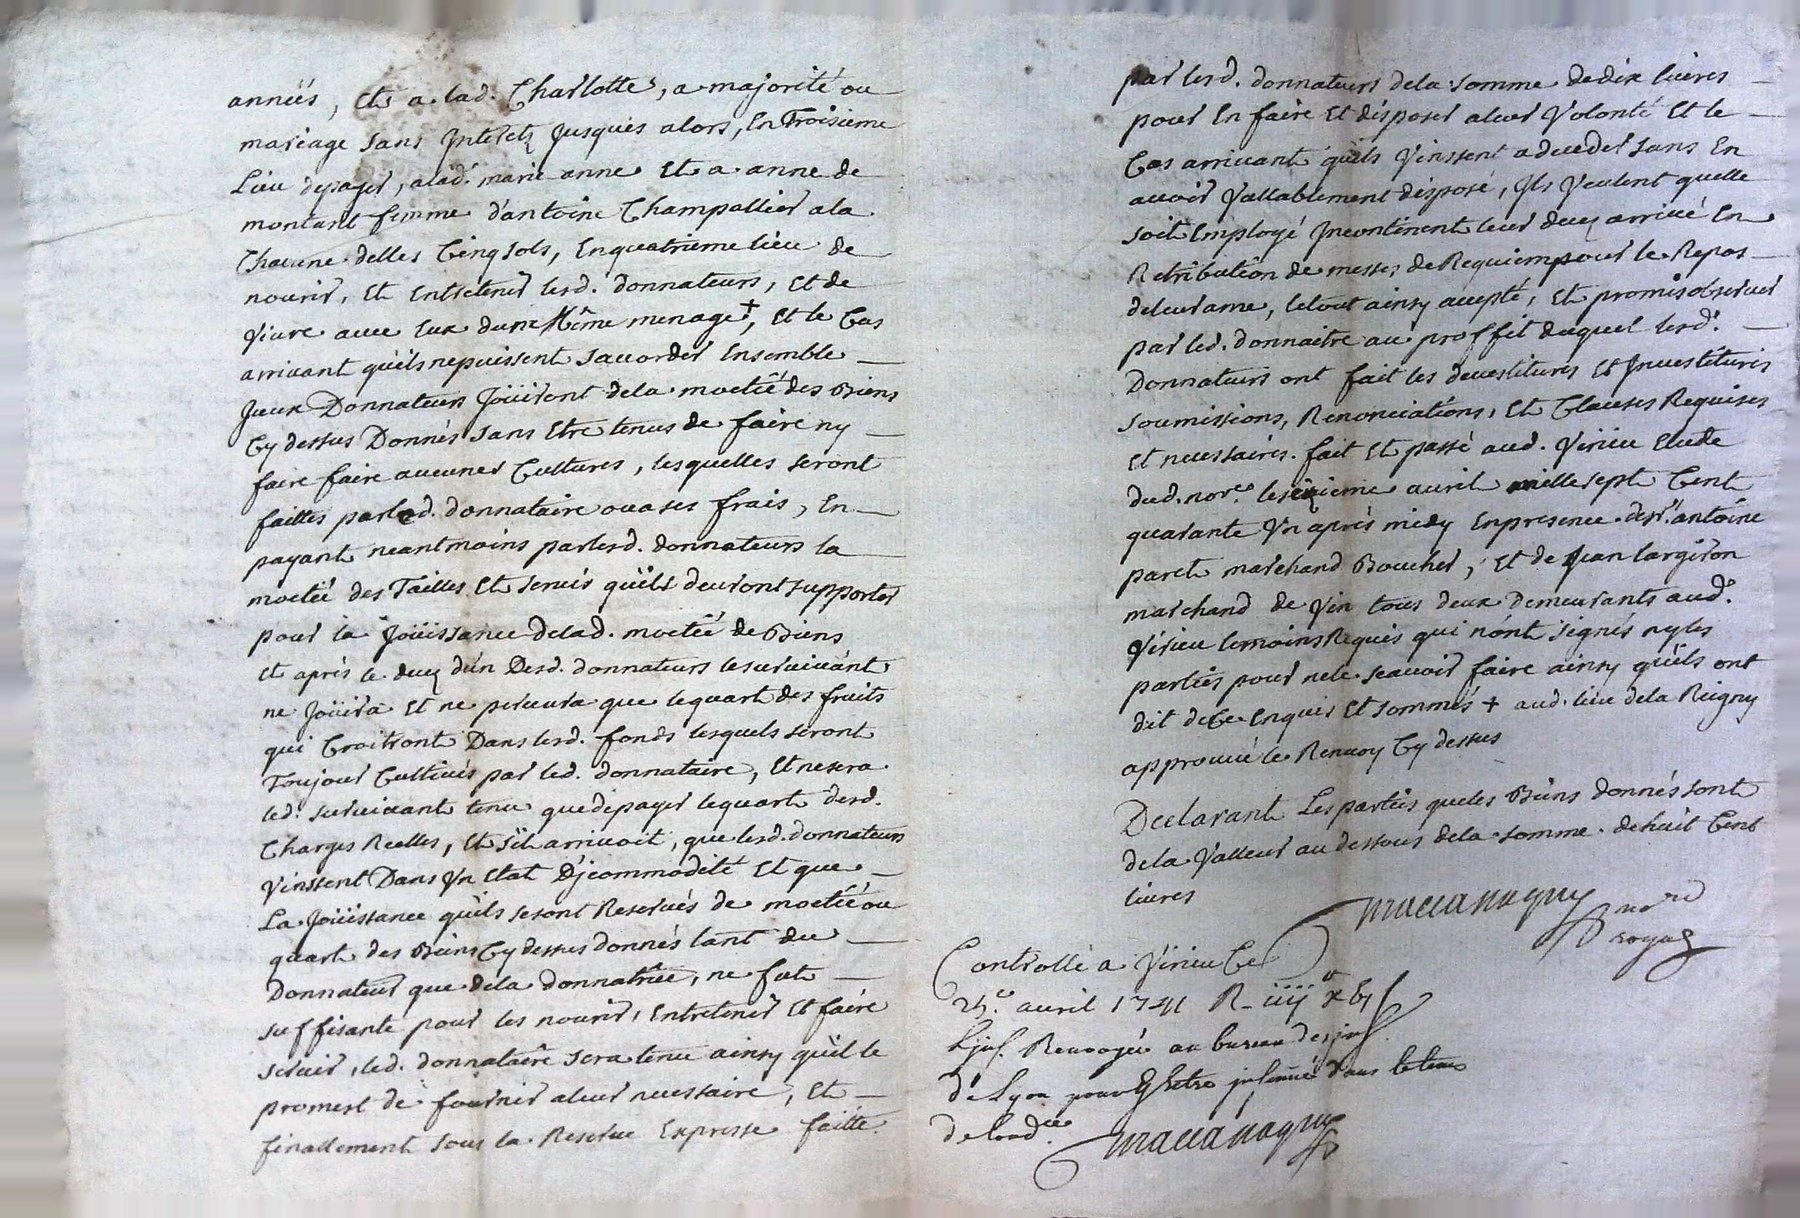 années, Et a lad. Charlotte, a majorité ou
mariage sans Interetz Jusques alors, En Troisieme
Lieu depayer, alad. marie anne Et a anne de
montant femme d'antoine Champallier ala
Chacune delles Cinq sols, En quatrieme lieu de
nourir, Et Entretenir lesd. donnateurs, Et de
Vivre avec Eux dun Même menage +, Et le Cas
arrivant quils nepuissent saccorder Ensemble
Iceux Donnateurs Joüiront dela moetié des Biens
Cy dessus Donnés sans Etre tenus de faire ny
faire faire aucunes Cultures, lesquelles seront
faittes par led. donnataire ou a ses frais, En
payant neantmoins par lesd. donnateurs la
moetié des Tailles Et servis quils devront supporter
pour la Joüissance delad. moetié de Biens
Et après le decez d'un Desd. donnateurs le survivant
ne Joüira Et ne percevra que le quart des fruits
qui Croitront Dans lesd. fonds lesquels seront
Toujour Cultivés par led. donnataire, Et ne sera
led. survivant tenu que depayer le quart desd.
Charges Reelles, Et s'il arrivoit, que lesd. donnateurs
Vinssent Dans Un Etat D'jcommodité Et que
La Joüissance quils se sont Reservés de moetié ou
quart des Biens Cy dessus donnés tant du
Donnateur que dela donnatrice, ne fut
suffisante pour les nourir, Entretenir Et faire
servir, led. donnataire sera tenu ainsy quil le
promest de fournir aleur necessaire, Et
finallement sous la Reserve Expresse faitte
par lesd. donnateurs dela somme dedix livres
pour En faire Et disposer aleur Volonté Et le
Cas arrivant quils Vinssent a deceder sans En
avoir Vallablement disposé, Ils Veulent quelle
soit Employé Incontinent leur decez arrivé En
Retribution de messes de Requiem pour le Repos
deleur ame, le tout ainsy accepté, Et promis observer
par led. donnaitre au proffit duquel lesd.
Donnateurs ont fait les devestitures Et Investitures
soumissions, Renonciations, Et Clauses Requises
Et necessaires. fait Et passé aud. Virieu Etude
dud. nore. le sixieme avril mille sept Cent
quarante Un après midy En presence de sr. antoine
paret marchand Boucher, Et de Jean largiron
marchand de Vin tous deux Demeurants aud.
Virieu temoins Requis qui n'ont signés ny les
parties pour ne le scavoir faire ainsy quils ont
dit de Ce Enquis Et sommés + aud. lieu dela Reigny
approuvé le Renvoy Cy dessus
Declarant Les parties que les Biens donnés sont
dela Valleur au dessous dela somme de huit Cent
livres
nore
royal
Controllé a Virieu Ce
avril 1741 R.
Renvoyée au bureau des
de Lyon pour y Estre jnsinué dans le tems
de lordce.